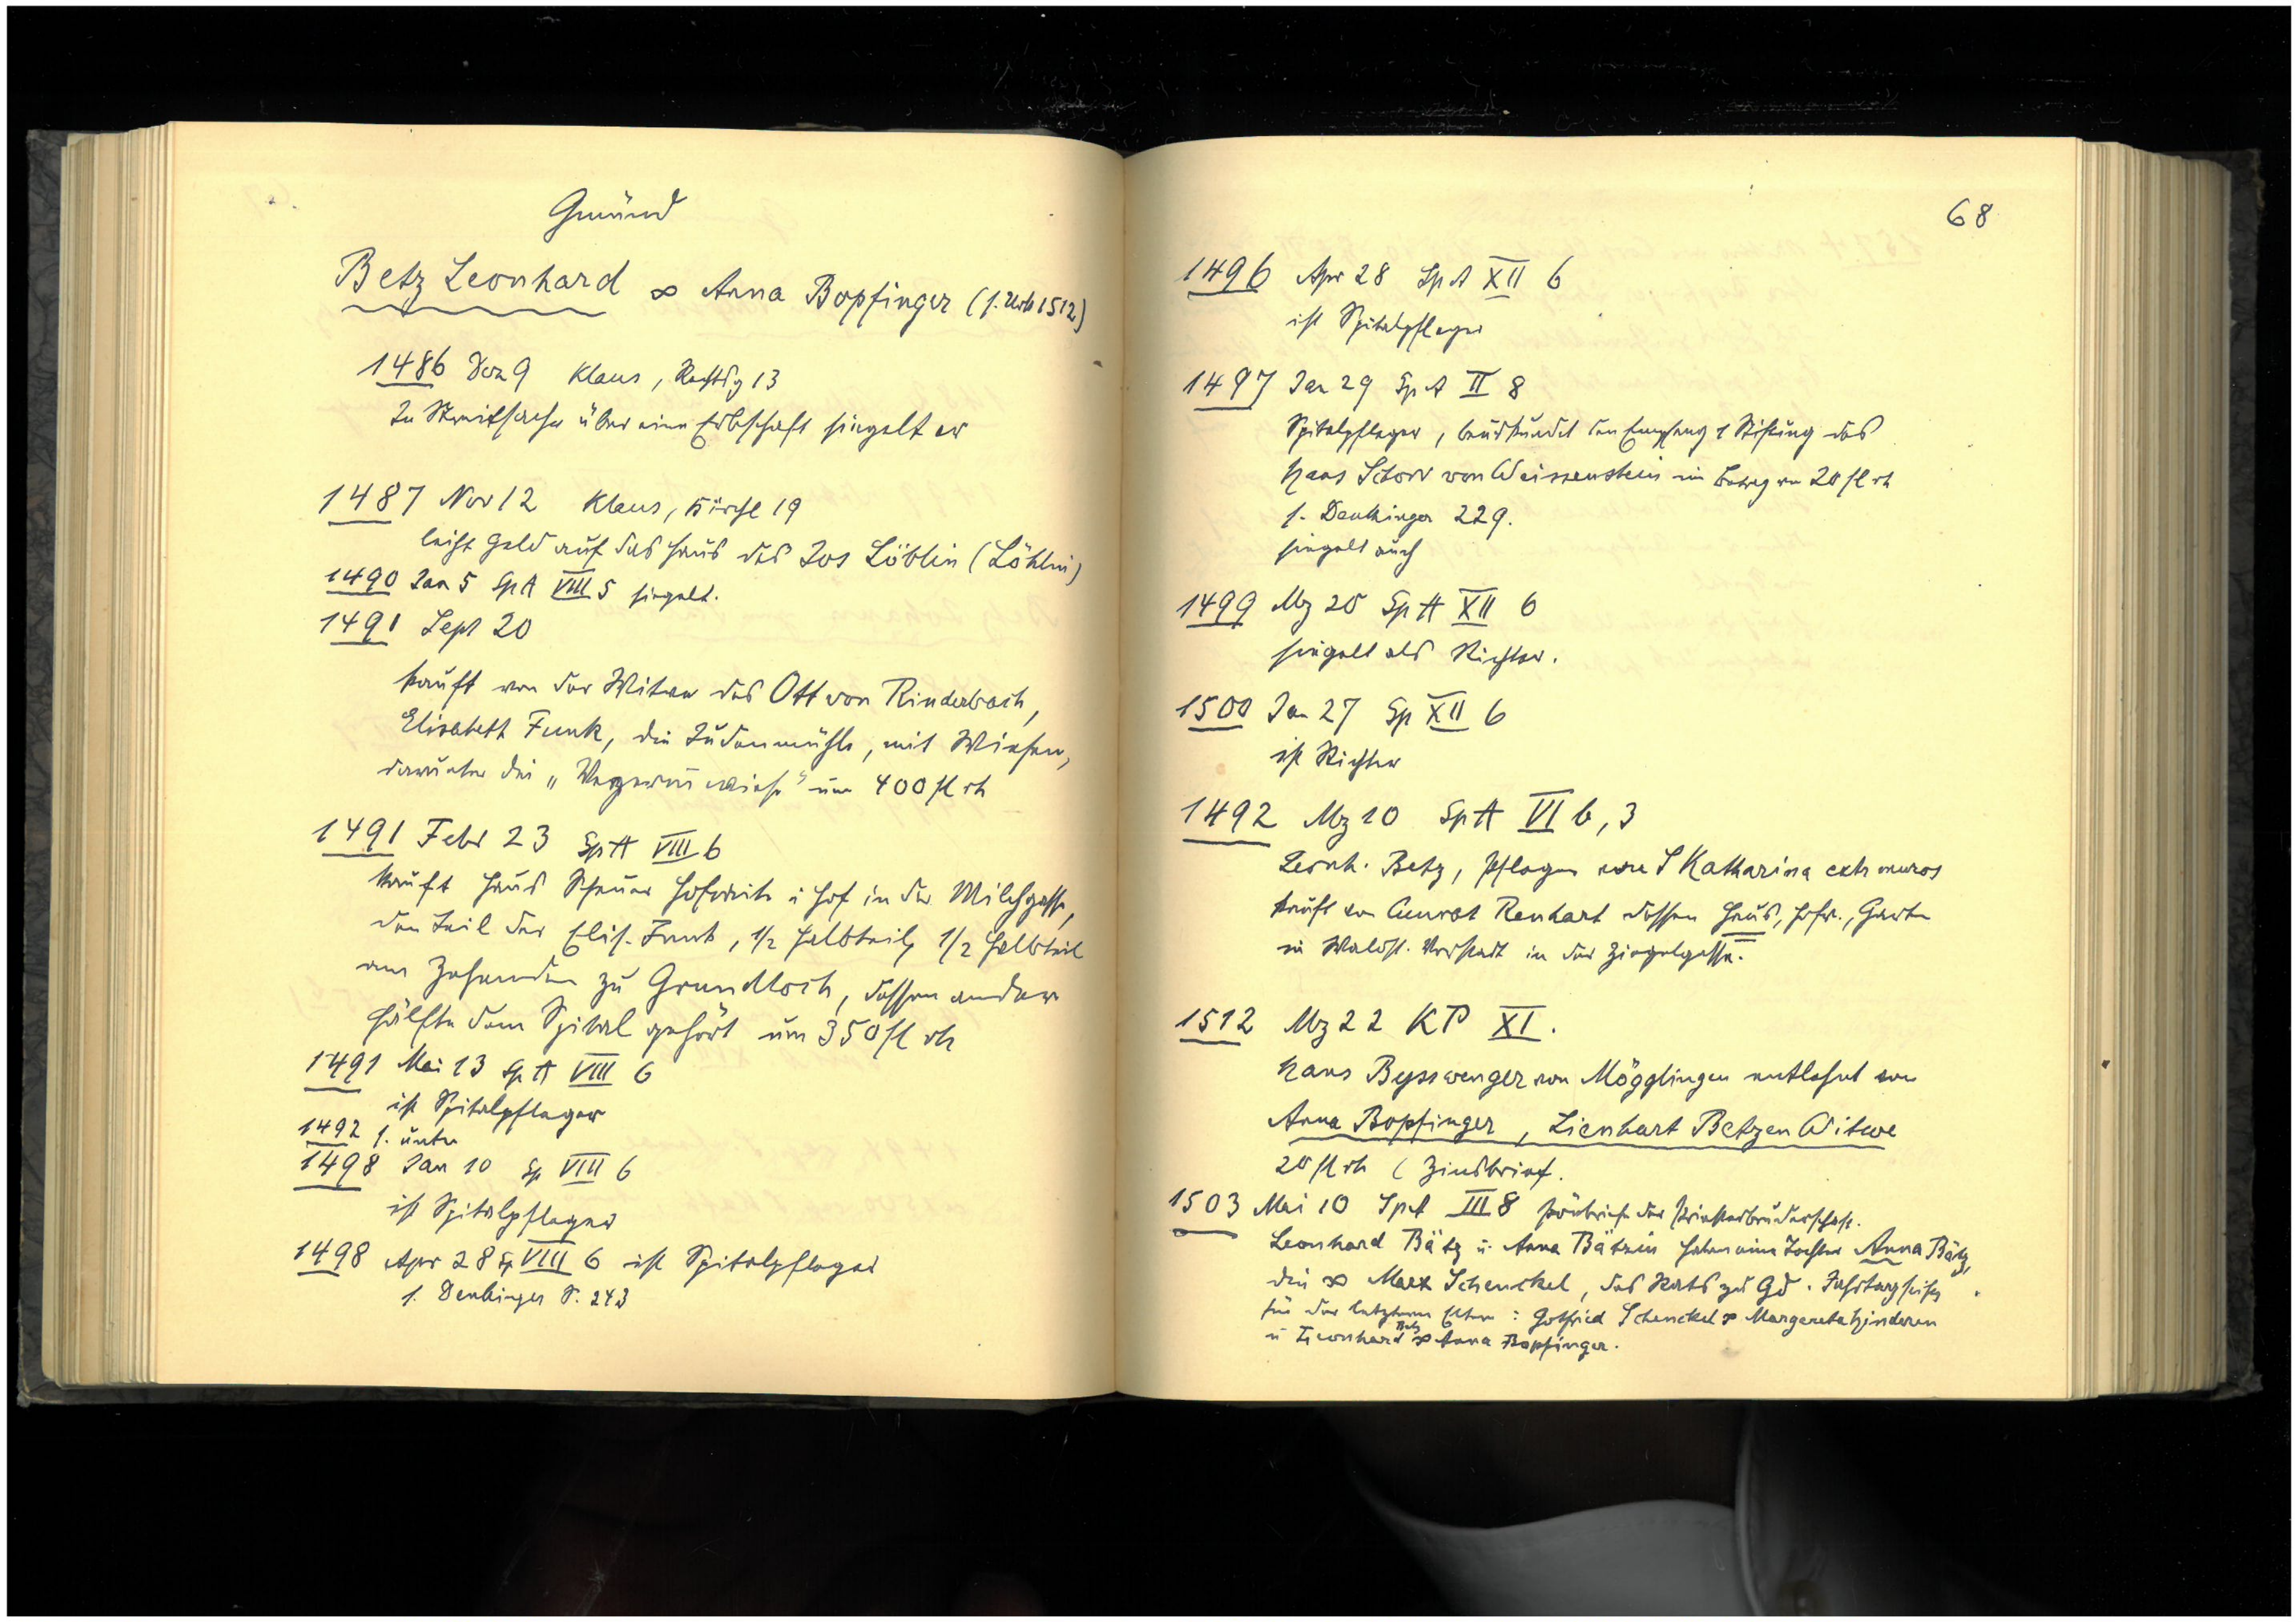 Gmünd
Betz Leonhard ∞ Anna Bopfinger (s. Urk 1512)
1486 Dez 9 Klaus, 13
In Streitsache über eine Erbschaft siegelt er
1487 Nov 12 Klaus, Kirche 19
leiht Geld auf das Haus des Jos Löblin (Löhlin)
1490 Jan 5 SpA VIII 5 siegelt.
1491 Sept 20
kauft von der Witwe des Ott von Rinderbach,
Elisabeth Funk, die Judenmühle, mit Wiesen,
darunter die um 400 fl rh
1491 Febr 23 SpA VIII 6
kauft Haus Scheuer Hofreite i Hof in der Milchgasse,
den Teil der Elis. Funk, 1/2 Halbteil, 1/2 Halbteil
am Zehenden zu Grundloch, dessen andere
Hälfte dem Spital gehört um 350 fl rh
1491 Mai 13 SpA VIII 6
ist Spitalpfleger
1492 s. unten
1498 Jan 10 Sp VIII 6
ist Spitalpfleger
1498 Apr 28 Sp VIII 6 ist Spitalpfleger
s. Denkinger S. 243
68
1496 Apr 28 SpA XII 6
ist Spitalpfleger
1497 Jan 29 SpA II 8
Spitalpfleger, beurkundet den Empfang 1 Stiftung des
Hans Schorr von Weissenstein im Betrag von 20 fl rh
s. Denkinger 229.
siegelt auch
1499 Mz 20 SpA XII 6
siegelt als Richter.
1500 Jan 27 Sp XII 6
ist Richter
1492 Mz 10 SpA VI b, 3
Leonh. Betz, Pfleger von S Katharina extr muros
kauft von Cunrat Renhart dessen Haus, Hofr., Garten
in Waldst. Vorstadt in der Ziegelgasse.
1512 Mz 22 KP XI.
Hans Bysswenger von Mögglingen entlehnt von
Anna Bopfinger, Lienhart Betzen Witwe
20 fl rh ( Zinsbrief.
1503 Mai 10 SpA III 8 der Priesterbruderschaft.
Leonhard Bätz u. Anna Bätzin haben eine Tochter Anna Bätz,
die ∞ Marx Schenckel, des Rats zu Gd. Jahrtag stiften
für der letzteren Eltern: Gotfried Schenckel ∞ Margareta
u Leonhard Betz ∞ Anna Bopfinger.